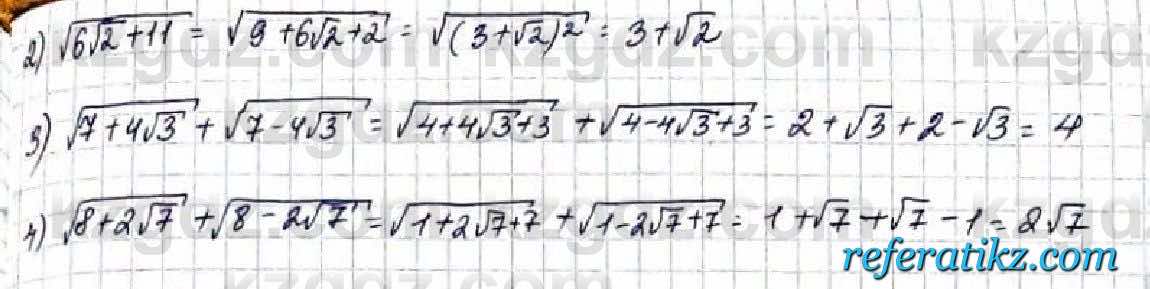 2) √(6√2+11) = √(9+6√2+2) = √((3+√2)²) = 3+√2
3) √(7+4√3) + √(7-4√3) = √(4+4√3+3) + √(4-4√3+3) = 2+√3+2-√3 = 4
4) √(8+2√7) + √(8-2√7) = √(1+2√7+7) + √(1-2√7+7) = 1+√7+√7-1 = 2√7
referatikz.com